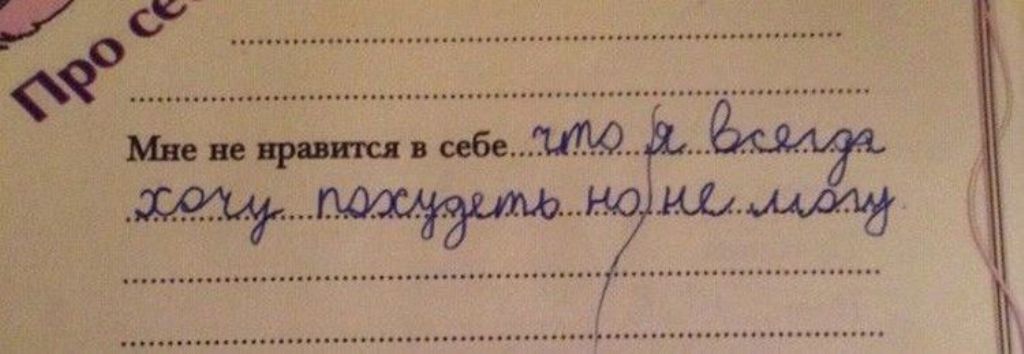 Про се
Мне не нравится в себе что я всегда
хочу похудеть но не могу